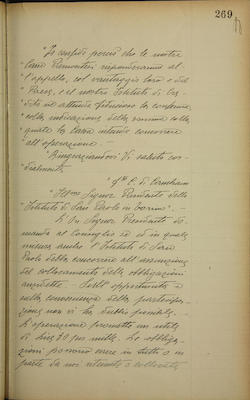 269
"Io confido perciò che le nostre
Casse Piemontesi risponderanno al=
l'appello, col vantaggio loro e del
Paese, e il nostro Istituto di Cre=
dito ne attende fiducioso la conferma
colla indicazione della somma colla
quale la Cassa intende concorrere
all'operazione. —
"Ringraziandovi Vi saluto cor=
dialmente
di
"Ill.mo Signor Presidente dello
Istituto di San Paolo in Torino". —
Il Signor Presidente do=
manda al Consiglio se ed in quale
misura anche l'Istituto di San
Paolo debba concorrere all'assunzione
del collocamento delle obbligazioni
anzidette. Sull'opportunità e
sulla convenienza della partecipa=
zione non vi ha dubbio possibile.
L'operazione promette un utile
di mille. Le obbliga=
zioni possono essere in tutto o in
parte da noi ritenute o collocate